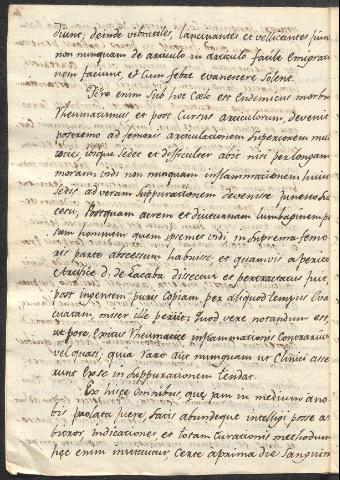 diunt, deinde vibratiles, lancinantes et vellicantes sunt
non nunquam de articulo in articulo facile emigratio
nem faciunt, et cum febre evanescere solent.
Fere enim sub hoc Cælo est Endemicus morbus
Rheumatismus et post cursus articulorum, devenit
postremo ad femoris articulationem superiorem mul
toties, ibique sedet et difficulter abit nisi per longam
moram, vidi non nunquam inflammationem huius
sedis ad veram suppurationem devenisse
cessu, Postquam acrem et diuturnam lumbaginem
sum hominem quem ipsemet vidi in suprema femo
ris parte abcessum habuisse et quamvis a perito
Artifice d. de Lacaba dissectus et pertractatus fuit
post ingentem puris copiam per aliquod tempus Eva
cuatam, miser ille periit: quod vere notandum est,
ut pote Exitus Rheumaticæ inflammationis contrarius
vel quasi, quia raro aut nunquam ut Clinici asse
runt Ex se in suppurationem tendat.
Ex hisce omnibus, que jam in medium a no
bis prolata fuere, satis abundeque intelligi posse ar
bitror, indicationes, et totam curationis methodum
hęc enim innuitur certe a prima die Sanguini